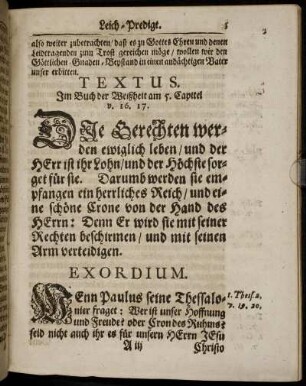 Leich-Predigt. 5
also weiter zubetrachten/ daß es zu Gottes Ehren und denen
Leidtragenden zum Trost gereichen möge/ wollen wir den
Göttlichen Gnaden-Beystand in einen andächtigen Vater
unser erbitten.
TEXTUS.
Im Buch der Weißheit am 5. Capitel
v. 16. 17.
DIe Gerechten wer-
den ewiglich leben/ und der
HErr ist ihr Lohn/ und der Höchste sor-
get für sie. Darumb werden sie em-
pfangen ein herrliches Reich/ und ei-
ne schöne Crone von der Hand des
HErrn: Denn Er wird sie mit seiner
Rechten beschirmen/ und mit seinen
Arm verteidigen.
EXORDIUM.
WEnn Paulus seine Thessalo-
nier fraget: Wer ist unser Hoffnung
und Freude? oder Cron des Ruhms?
seid nicht auch ihr es für unsern HErrn JEsu
1. Thess. 2.
v. 19. 20.
A iij Christo